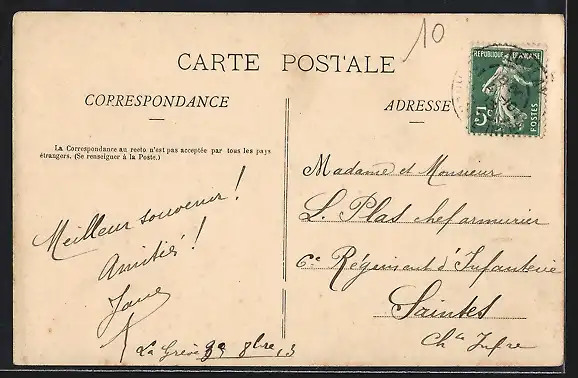 10
CARTE POSTALE
CORRESPONDANCE
ADRESSE
REPUBLIQUE FRANÇAISE
5c
POSTES
La Correspondance au recto n'est pas acceptée par tous les pays
étrangers. (Se renseigner à la Poste.)
Meilleur souvenir !
Amitiés !
La Grève 8bre 13
Madame et Monsieur
L. Plas chef armurier
6e Régiment d'Infanterie
Saintes
Chte Infre